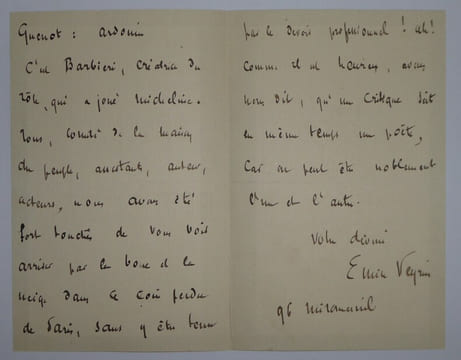 Guenot : Ardouin
C'est Barbieri, créatrice du
rôle, qui a joué Micheline.
Tous, comité de la maison
du peuple, assistants, auteur,
acteurs, nous avons été
fort touchés de vous voir
arriver par la boue et la
neige dans ce coin perdu
de Paris, sans y être tenu
par le devoir professionnel ! Ah!
comme il est heureux, avons
nous dit, qu'un critique soit
en même temps un poète,
car on peut être noblement
l'un et l'autre.
Votre dévoué
Emile Veyrin
96 Miromesnil